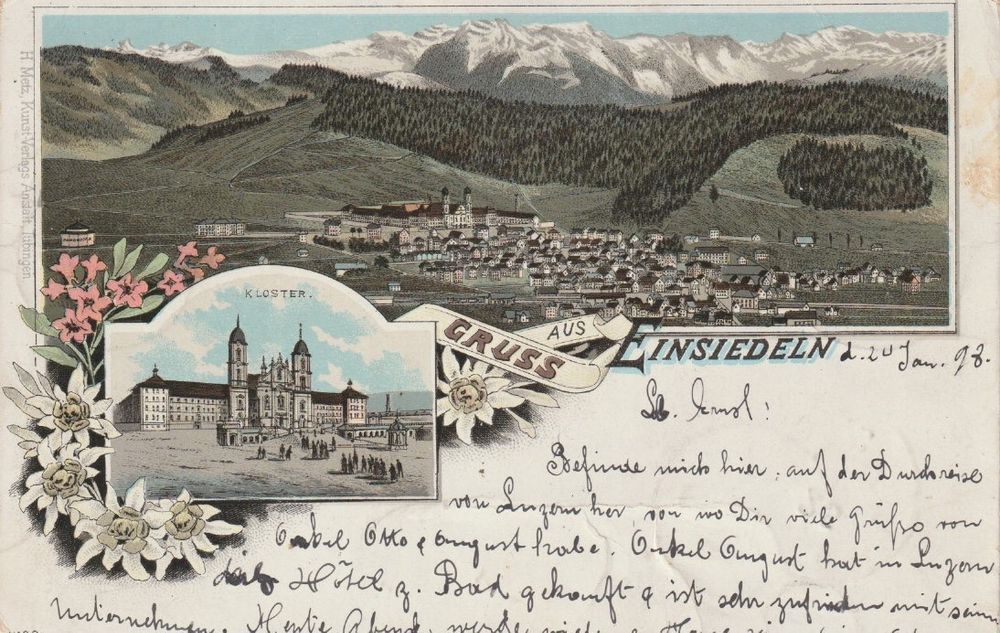 H. Metz, Kunst-Verlags Anstalt, Tübingen
KLOSTER.
GRUSS AUS EINSIEDELN
d. 20 Jan. 98.
Lb. Ernst!
Befinde mich hier, auf der Durchreise
von Luzern her, von wo Dir viele Grüße von
Onkel Otto & August habe. Onkel August hat in Luzern
das Hôtel z. Bad gekauft & ist sehr zufrieden mit sein
Unternehmen. Heute Abend werde wieder